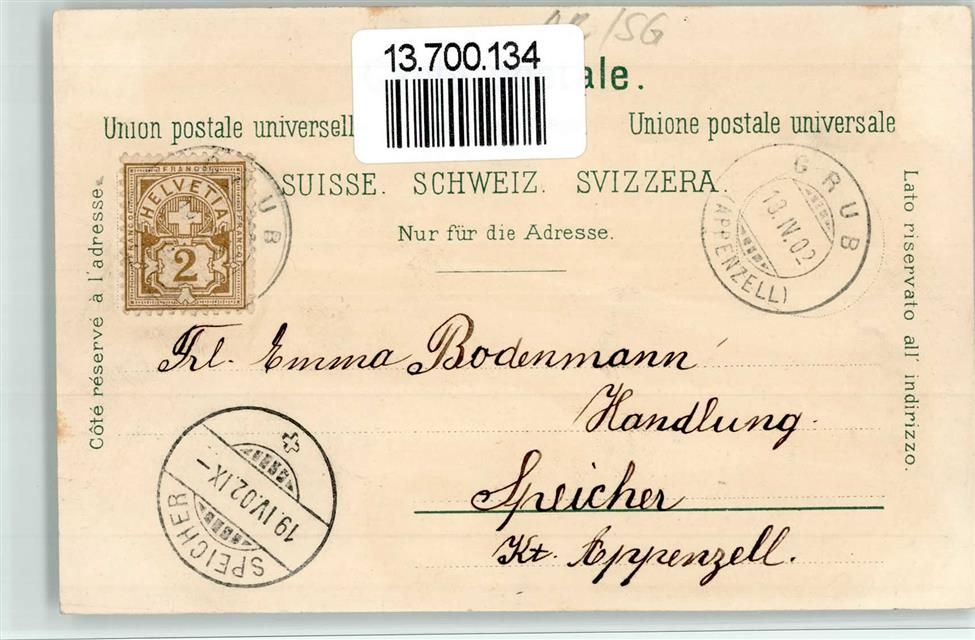 AR/SG
13.700.134
ale.
Union postale universell
Unione postale universale
SUISSE. SCHWEIZ. SVIZZERA.
Nur für die Adresse.
Côté réservé à l'adresse.
Lato riservato all' indirizzo.
FRANCO
FRANCO
HELVETIA
2
RUB
GRUB
13.IV.02
(APPENZELL)
Frl. Emma Bodenmann
Handlung.
Speicher
Kt. Appenzell.
19.IV.02.IX-
SPEICHER